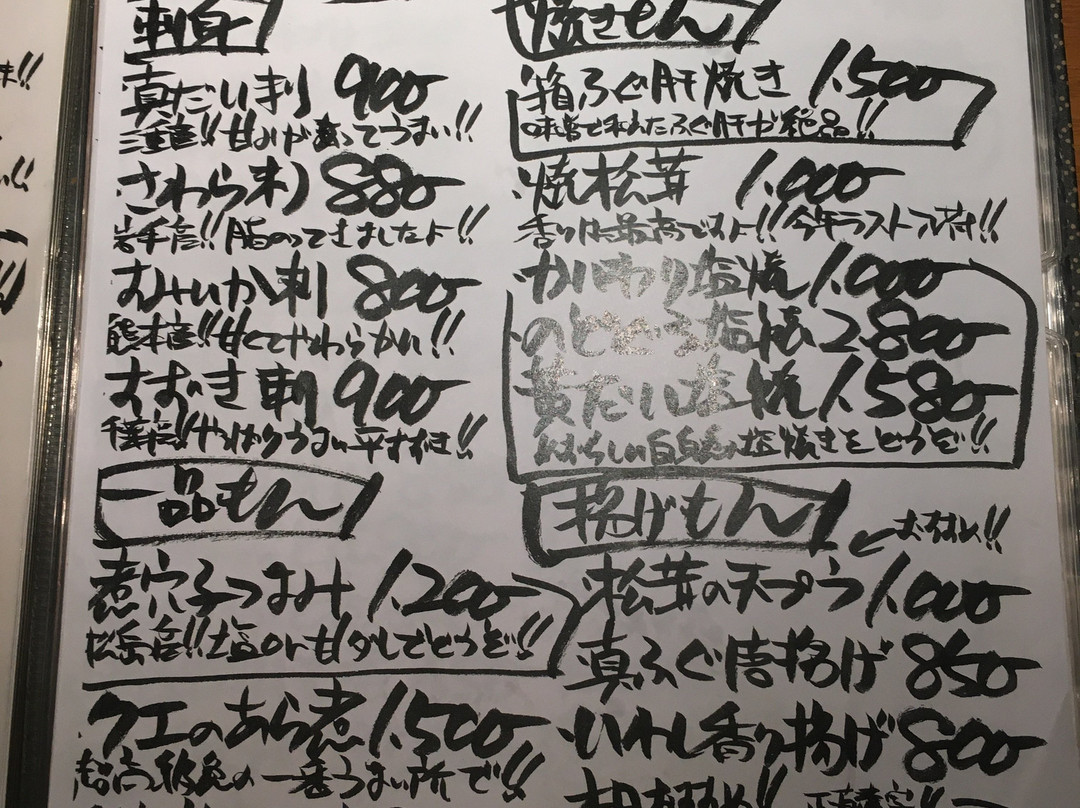 刺身
真だい刺 900-
三重産!!甘みが乗ってうまい!!
さわら刺 880-
岩手産!!脂のってきましたよ!!
すみいか刺 800-
熊本産!!甘くてやわらかい!!
すずき刺 900-
千葉産!!やっぱりうまい平すずき!!
一品もん
煮穴子つまみ 1.200-
松島産!!塩or甘ダレでどうぞ!!
クエのあら煮 1.500-
超高級魚の一番うまい所で!!
焼きもん
箱ふぐ肝焼き 1.500-
味噌で和えたふぐ肝が絶品!!
焼松茸 1.000-
香りは最高ですよ!!今年ラスト入荷!!
かいわり塩焼 1.000-
のどぐろ塩焼 2.800-
黄だい塩焼 1.580-
めずらしい白身魚の塩焼きをどうぞ!!
揚げもん
おすすめ!!
松茸の天プラ 1.000-
真ふぐ唐揚げ 850-
いわし香り揚げ 800-